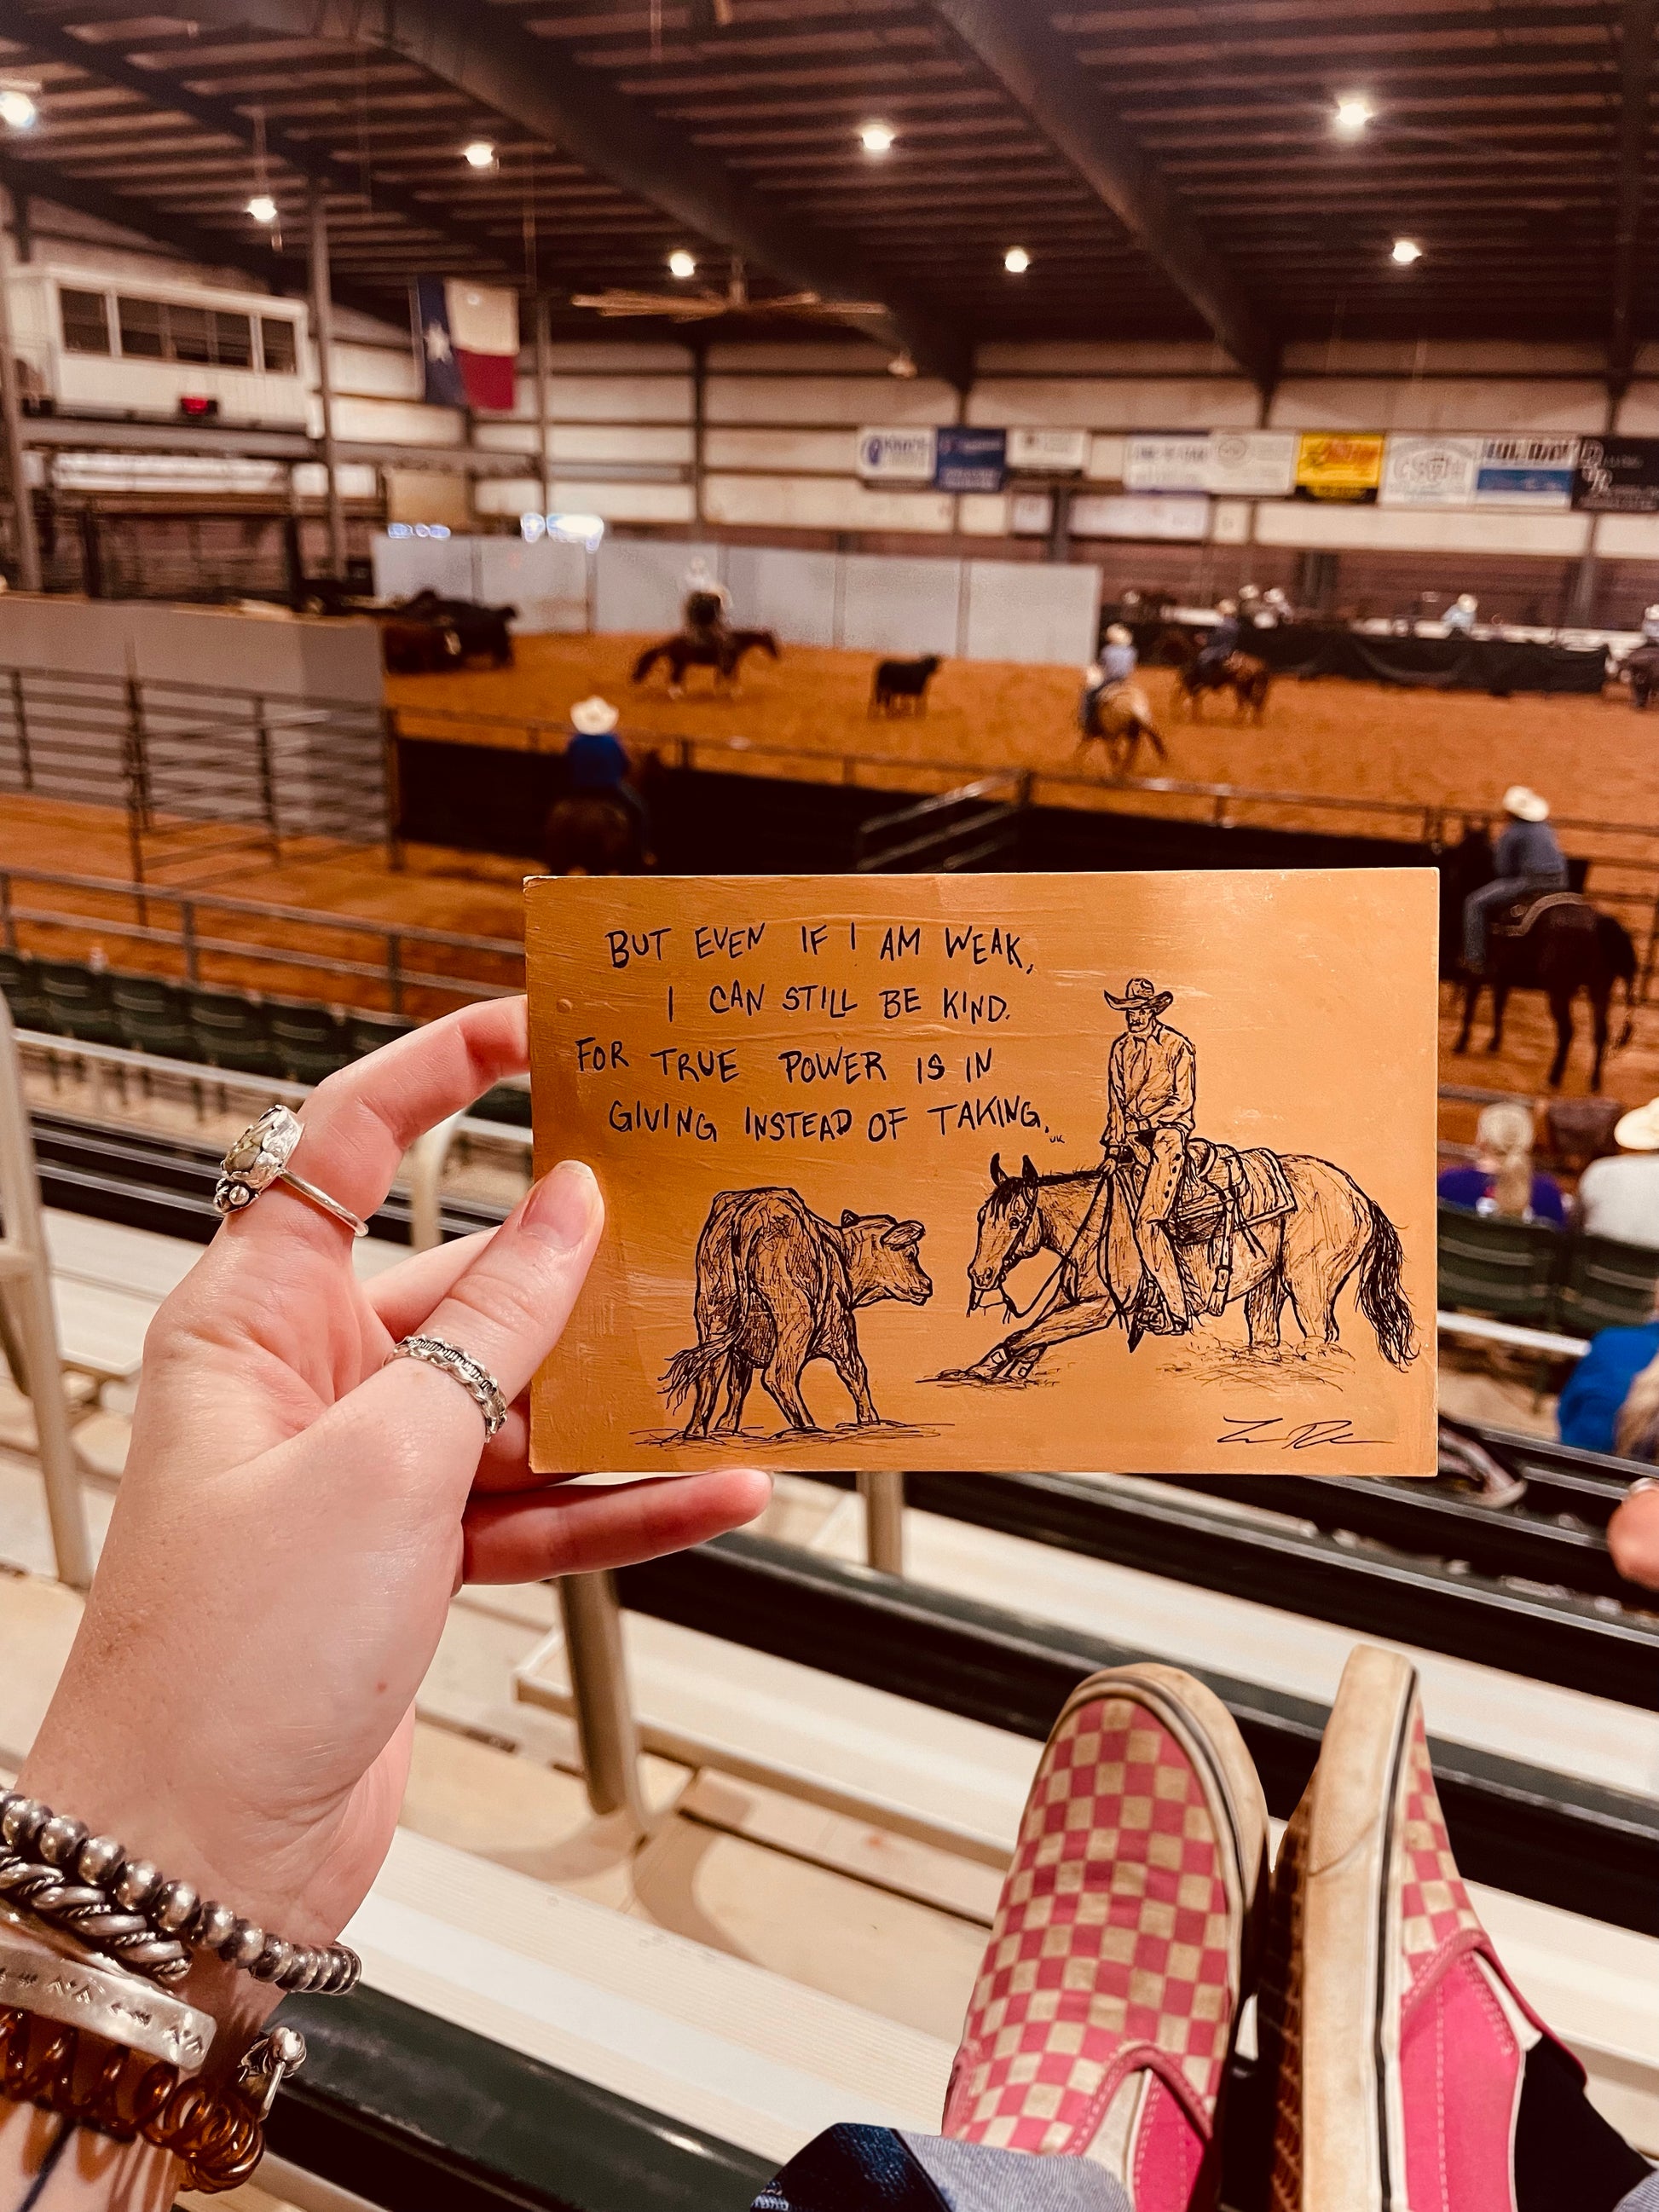 BUT EVEN IF I AM WEAK,
I CAN STILL BE KIND.
FOR TRUE POWER IS IN
GIVING INSTEAD OF TAKING.